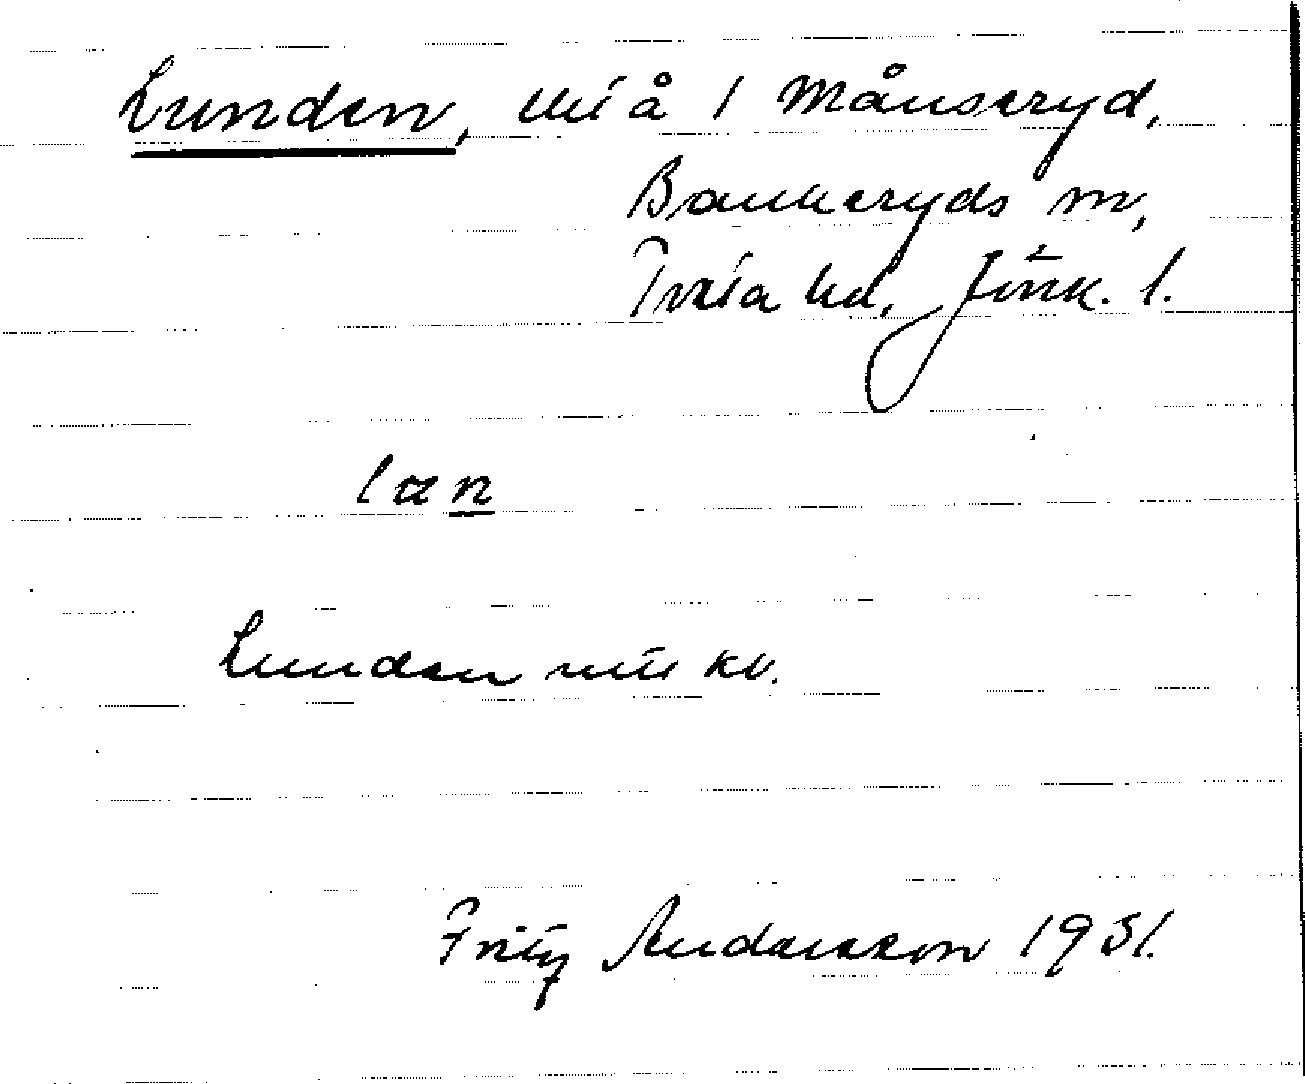 Lunden, utj å 1 Månseryd,
Bankeryds sn,
Tveta hd, Jönk. l.
læn
Lunden
Fritz Andersson 1931.